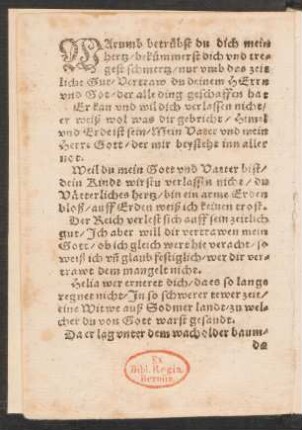 WArumb betrübst du dich mein
hertz/bekümmerst dich vnd tre-
gest schmertz/nur vmb das zeit
liche Gut/Vertraw du deinem HErrn
vnd Got/der alle ding geschaffen hat
Er kan vnd wil dich verlassen nicht/
er weiß wol was dir gebricht/Himel
vnd Erde ist sein/Mein Vater vnd mein
Herre Gott/der mir beysteht inn aller
not.
Weil du mein Gott vnd Vatter bist/
dein Kinde wirstu verlassen nicht/du
Vätterliches hertz/bin ein arme Erden
bloß/auff Erden weiß ich keinen trost.
Der Reich verleßt sich auff sein zeitlich
gut/Jch aber will dir vertrawen mein
Gott/ob ich gleich werd hie veracht/so
weiß ich vñ glaub festiglich/wer dir ver-
trawt dem mangelt nicht.
Helia wer erneret dich/da es so lange
regnet nicht/Jn so schwerer tewer zeit/
eine Witwe auß Sodmer landt/zu wel-
cher du von Gott warst gesandt.
Da er lag vnter dem wacholder baum-
da
Ex
Bibl. Regia
Berolin.